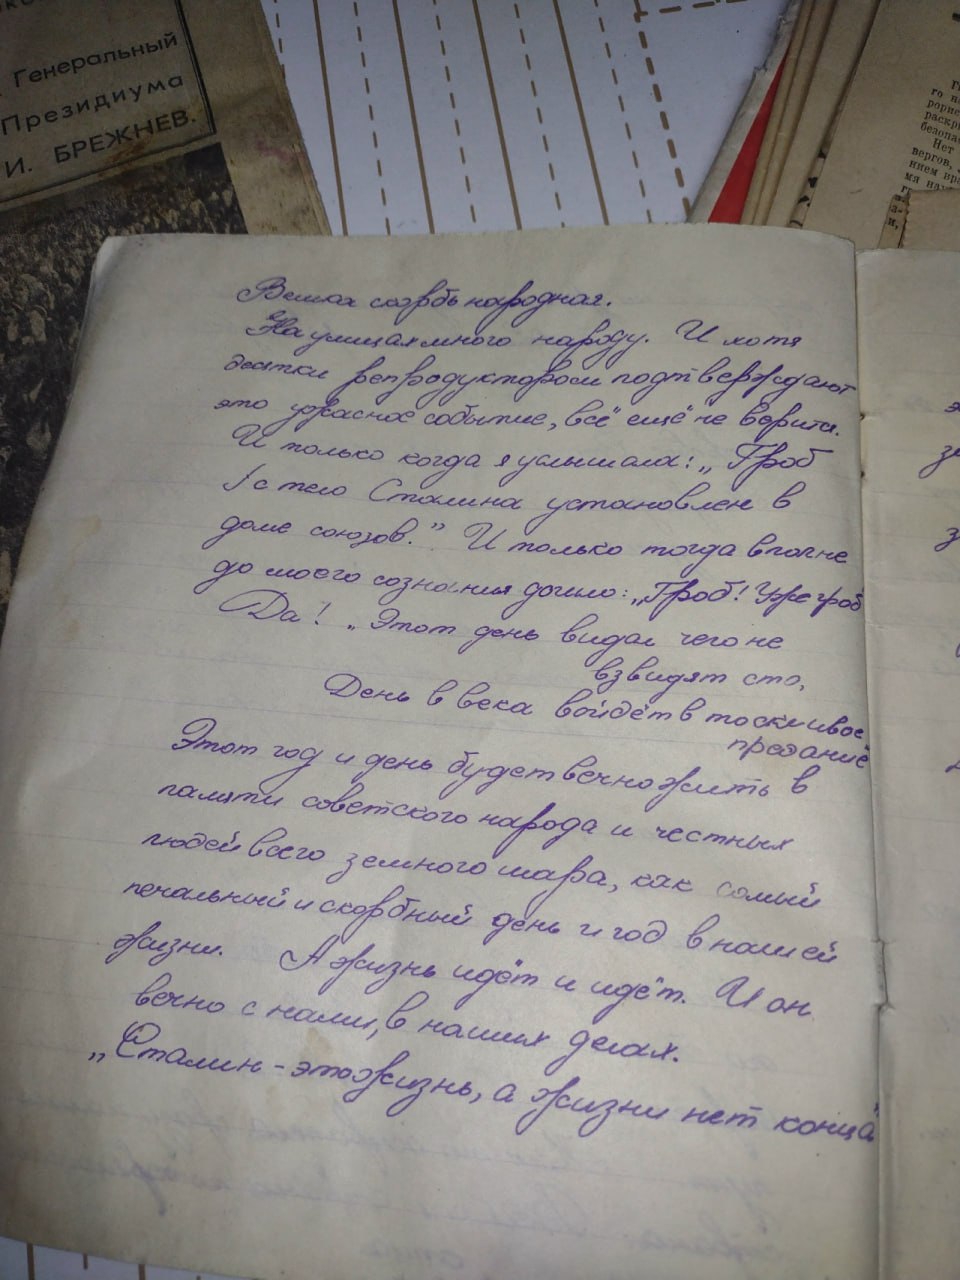 Генеральный
Президиума
И. БРЕЖНЕВ.
Нет
вергов,
Велика скорбь народная.
На улицах много народу. И хотя
десятки репродукторов подтверждают
это ужасное событие, всё ещё не верится.
И только когда я услышала: „Гроб
с тело Сталина установлен в
доме союзов.” И только тогда вполне
до моего сознания дошло: „Гроб! Уже гроб
Да! „Этот день видал чего не
взвидят сто,
День в века войдёт в тоскливое
предание
Этот год и день будет вечно жить в
памяти советского народа и честных
людей всего земного шара, как самый
печальный и скорбный день и год в нашей
жизни. А жизнь идёт и идёт. И он
вечно с нами, в наших делах.
„Сталин - это жизнь, а жизни нет конца”